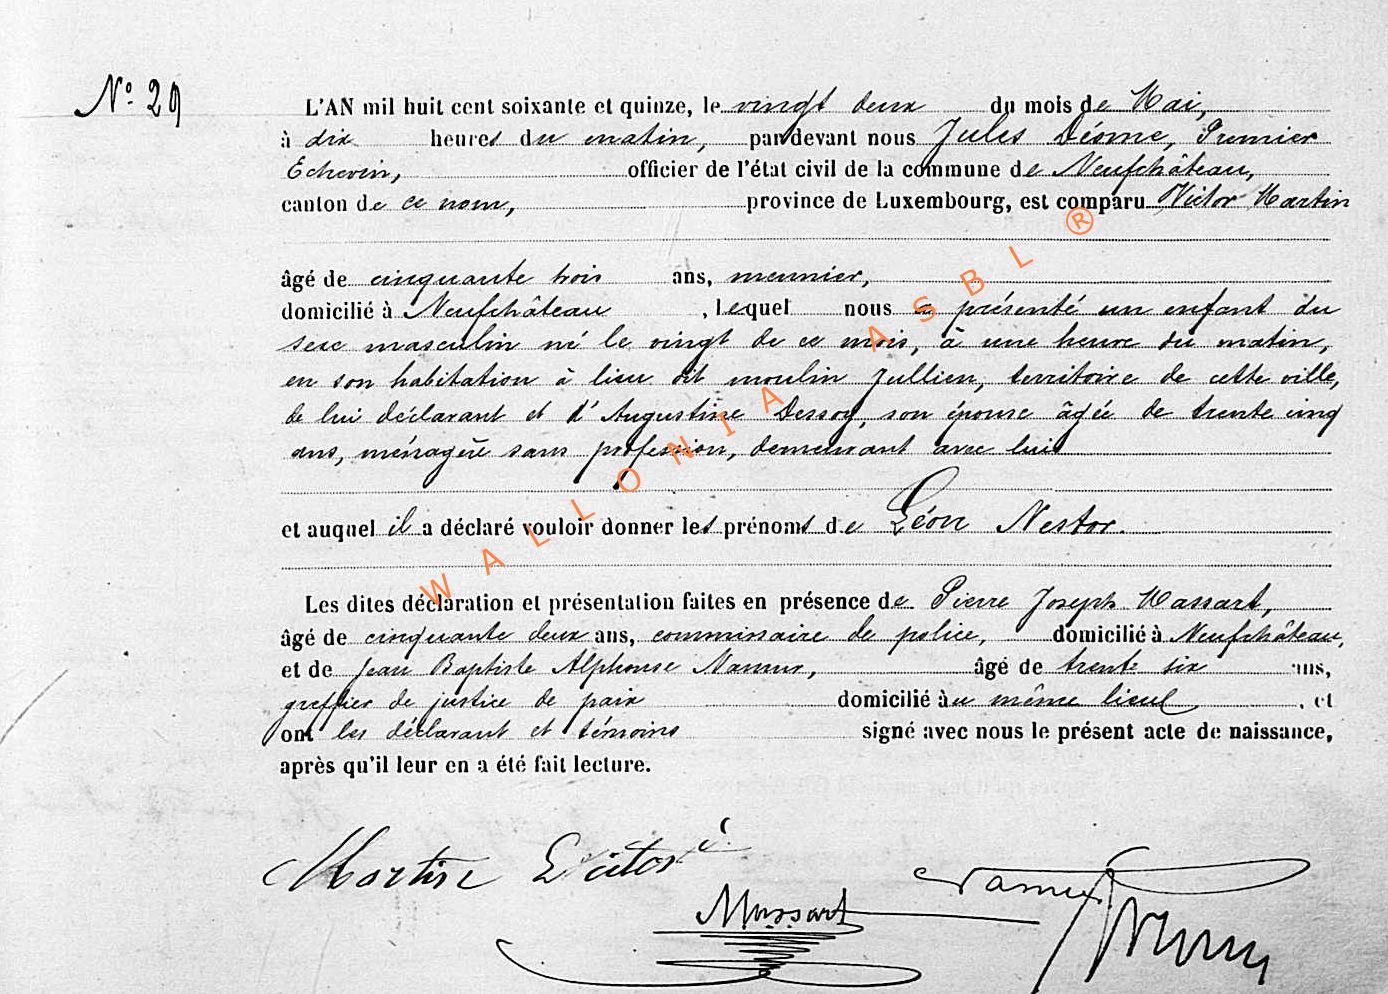 N° 29
L'AN mil huit cent soixante et quinze, le vingt deux du mois de Mai,
à dix heures du matin, par devant nous Jules Déome, Premier
Echevin, officier de l'état civil de la commune de Neufchâteau,
canton de ce nom, province de Luxembourg, est comparu Victor Martin
âgé de cinquante trois ans, meunier,
domicilié à Neufchâteau, lequel nous a présenté un enfant du
sexe masculin né le vingt de ce mois, à une heure du matin,
en son habitation à lieu dit moulin Jullien, territoire de cette ville,
de lui déclarant et d'Augustine Dessoy, son épouse âgée de trente cinq
ans, ménagère sans profession, demeurant avec lui
et auquel il a déclaré vouloir donner les prénoms de Léon Nestor.
Les dites déclaration et présentation faites en présence de Pierre Joseph Massart,
âgé de cinquante deux ans, commissaire de police, domicilié à Neufchâteau,
et de Jean Baptiste Alphonse Namur, âgé de trente six ans,
greffier de justice de paix domicilié au même lieu, et
ont les déclarant et témoins signé avec nous le présent acte de naissance,
après qu'il leur en a été fait lecture.
Martin Victor
Massart
Namur
WALLONIA ASBL ®